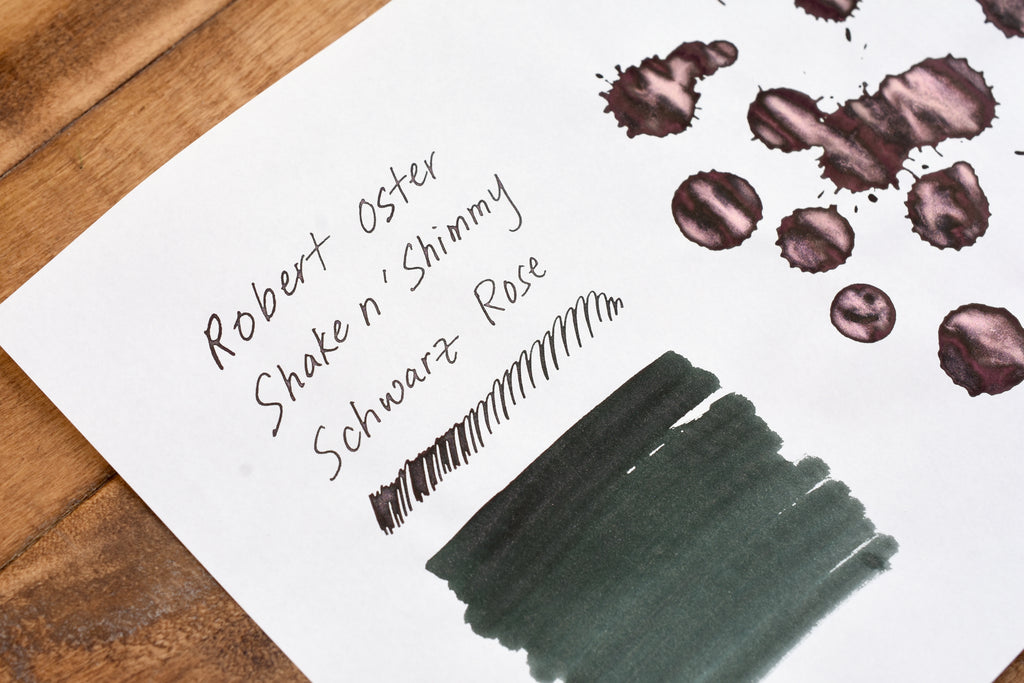 Robert Oster
Shake n' Shimmy
Schwarz Rose